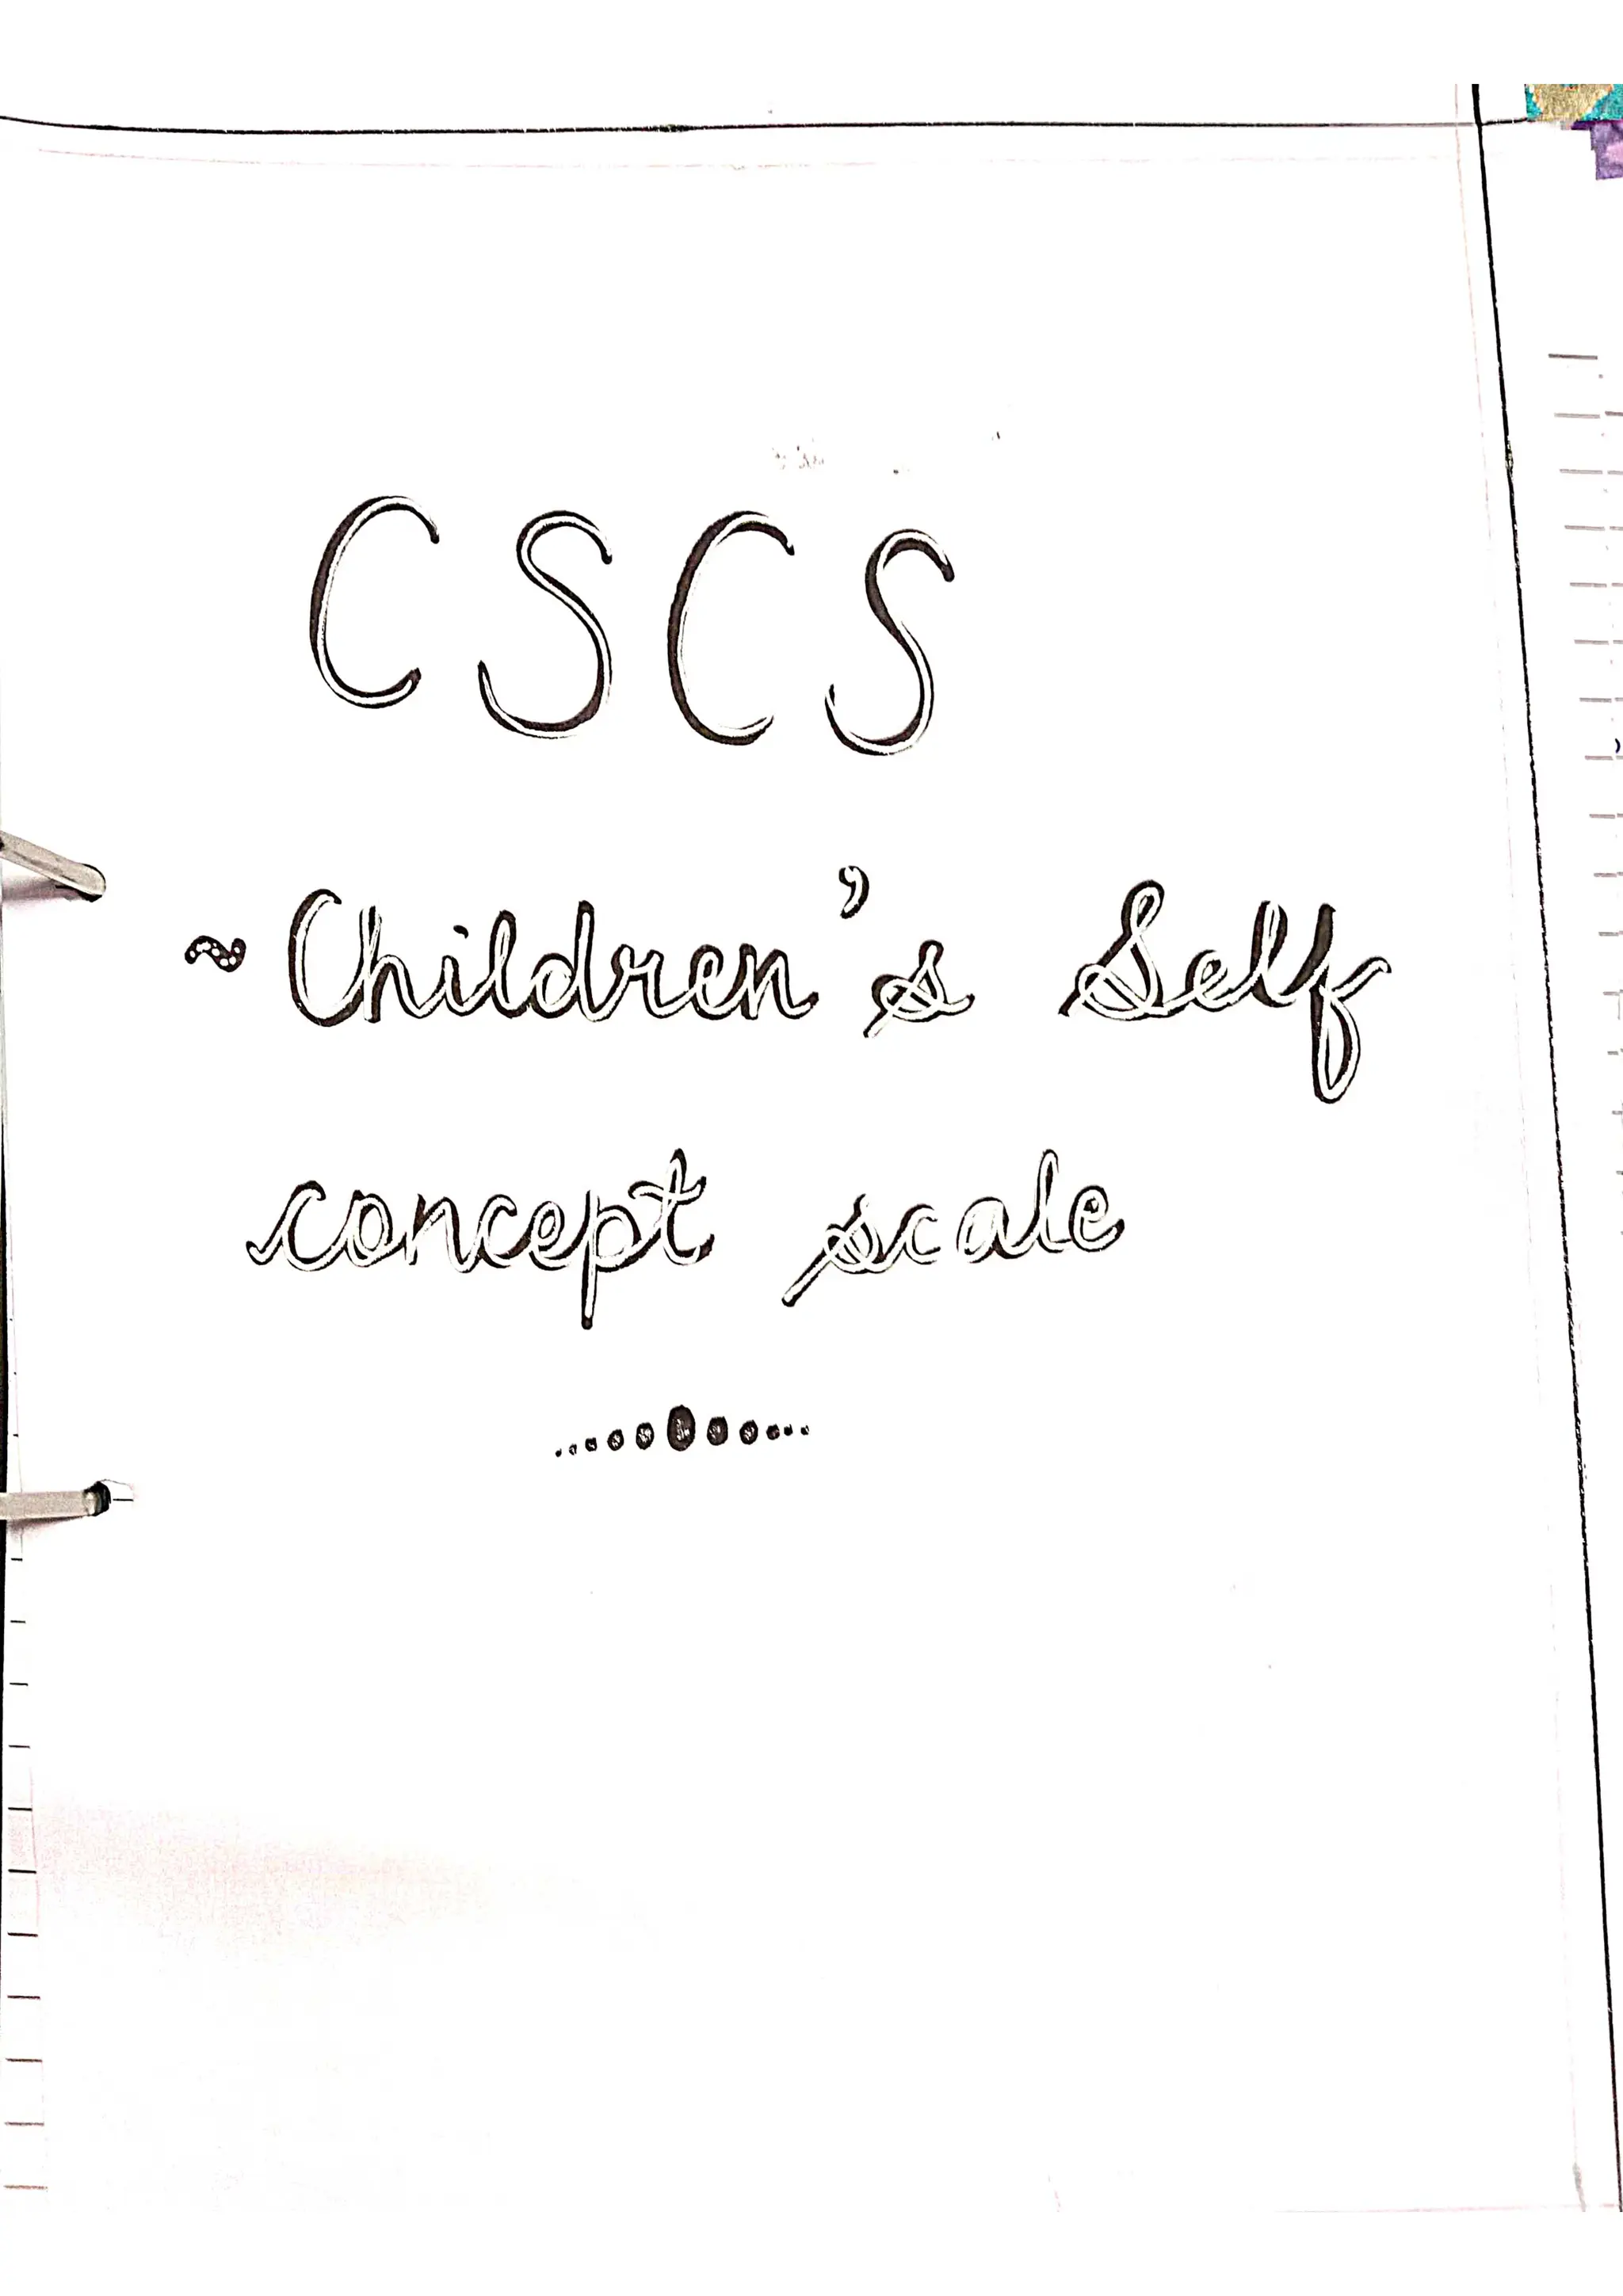 CSCS
~ Children's Self
concept scale